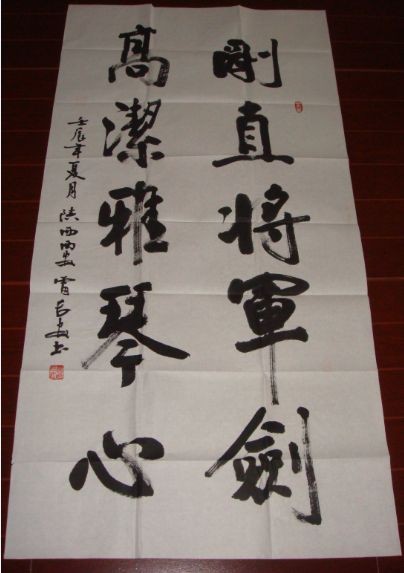 剛直将軍劍
高潔雅琴心
壬辰年夏月 陕西西安